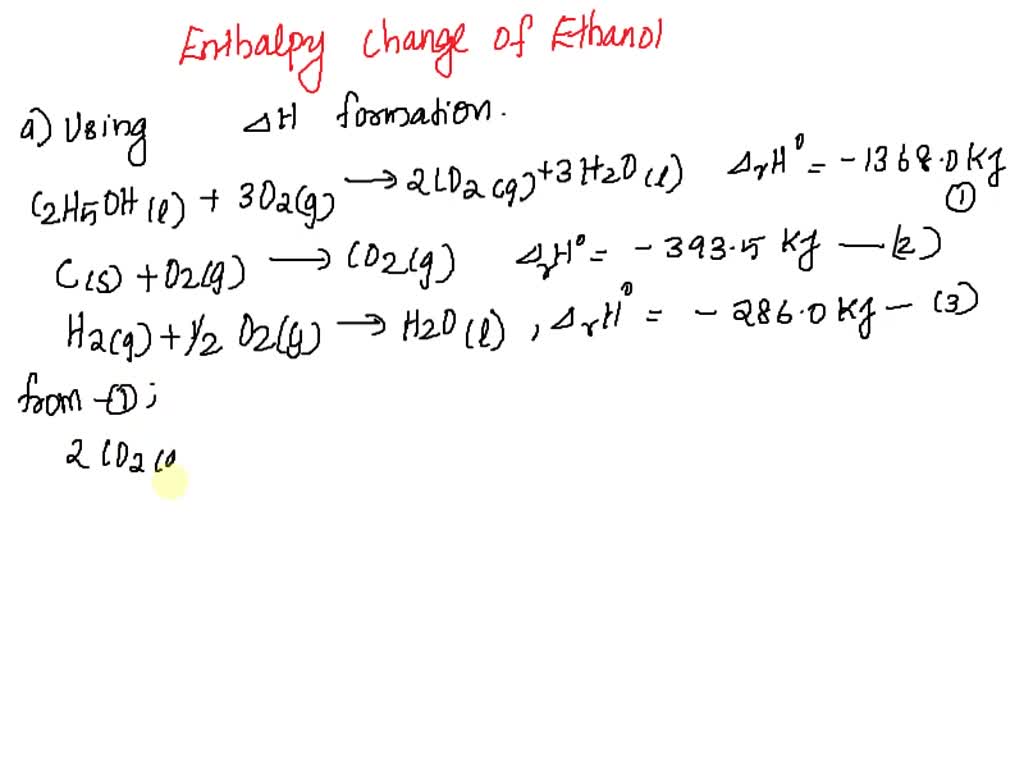 Enthalpy change of Ethanol
a) Using ΔH formation.
C2H5OH(l) + 3O2(g) → 2CO2(g) + 3H2O(l) ΔrH° = -1368.0 KJ ①
C(s) + O2(g) → CO2(g) ΔrH° = -393.5 KJ —(2)
H2(g) + 1/2 O2(g) → H2O(l), ΔrH° = -286.0 KJ — (3)
from -①;
2 CO2 (